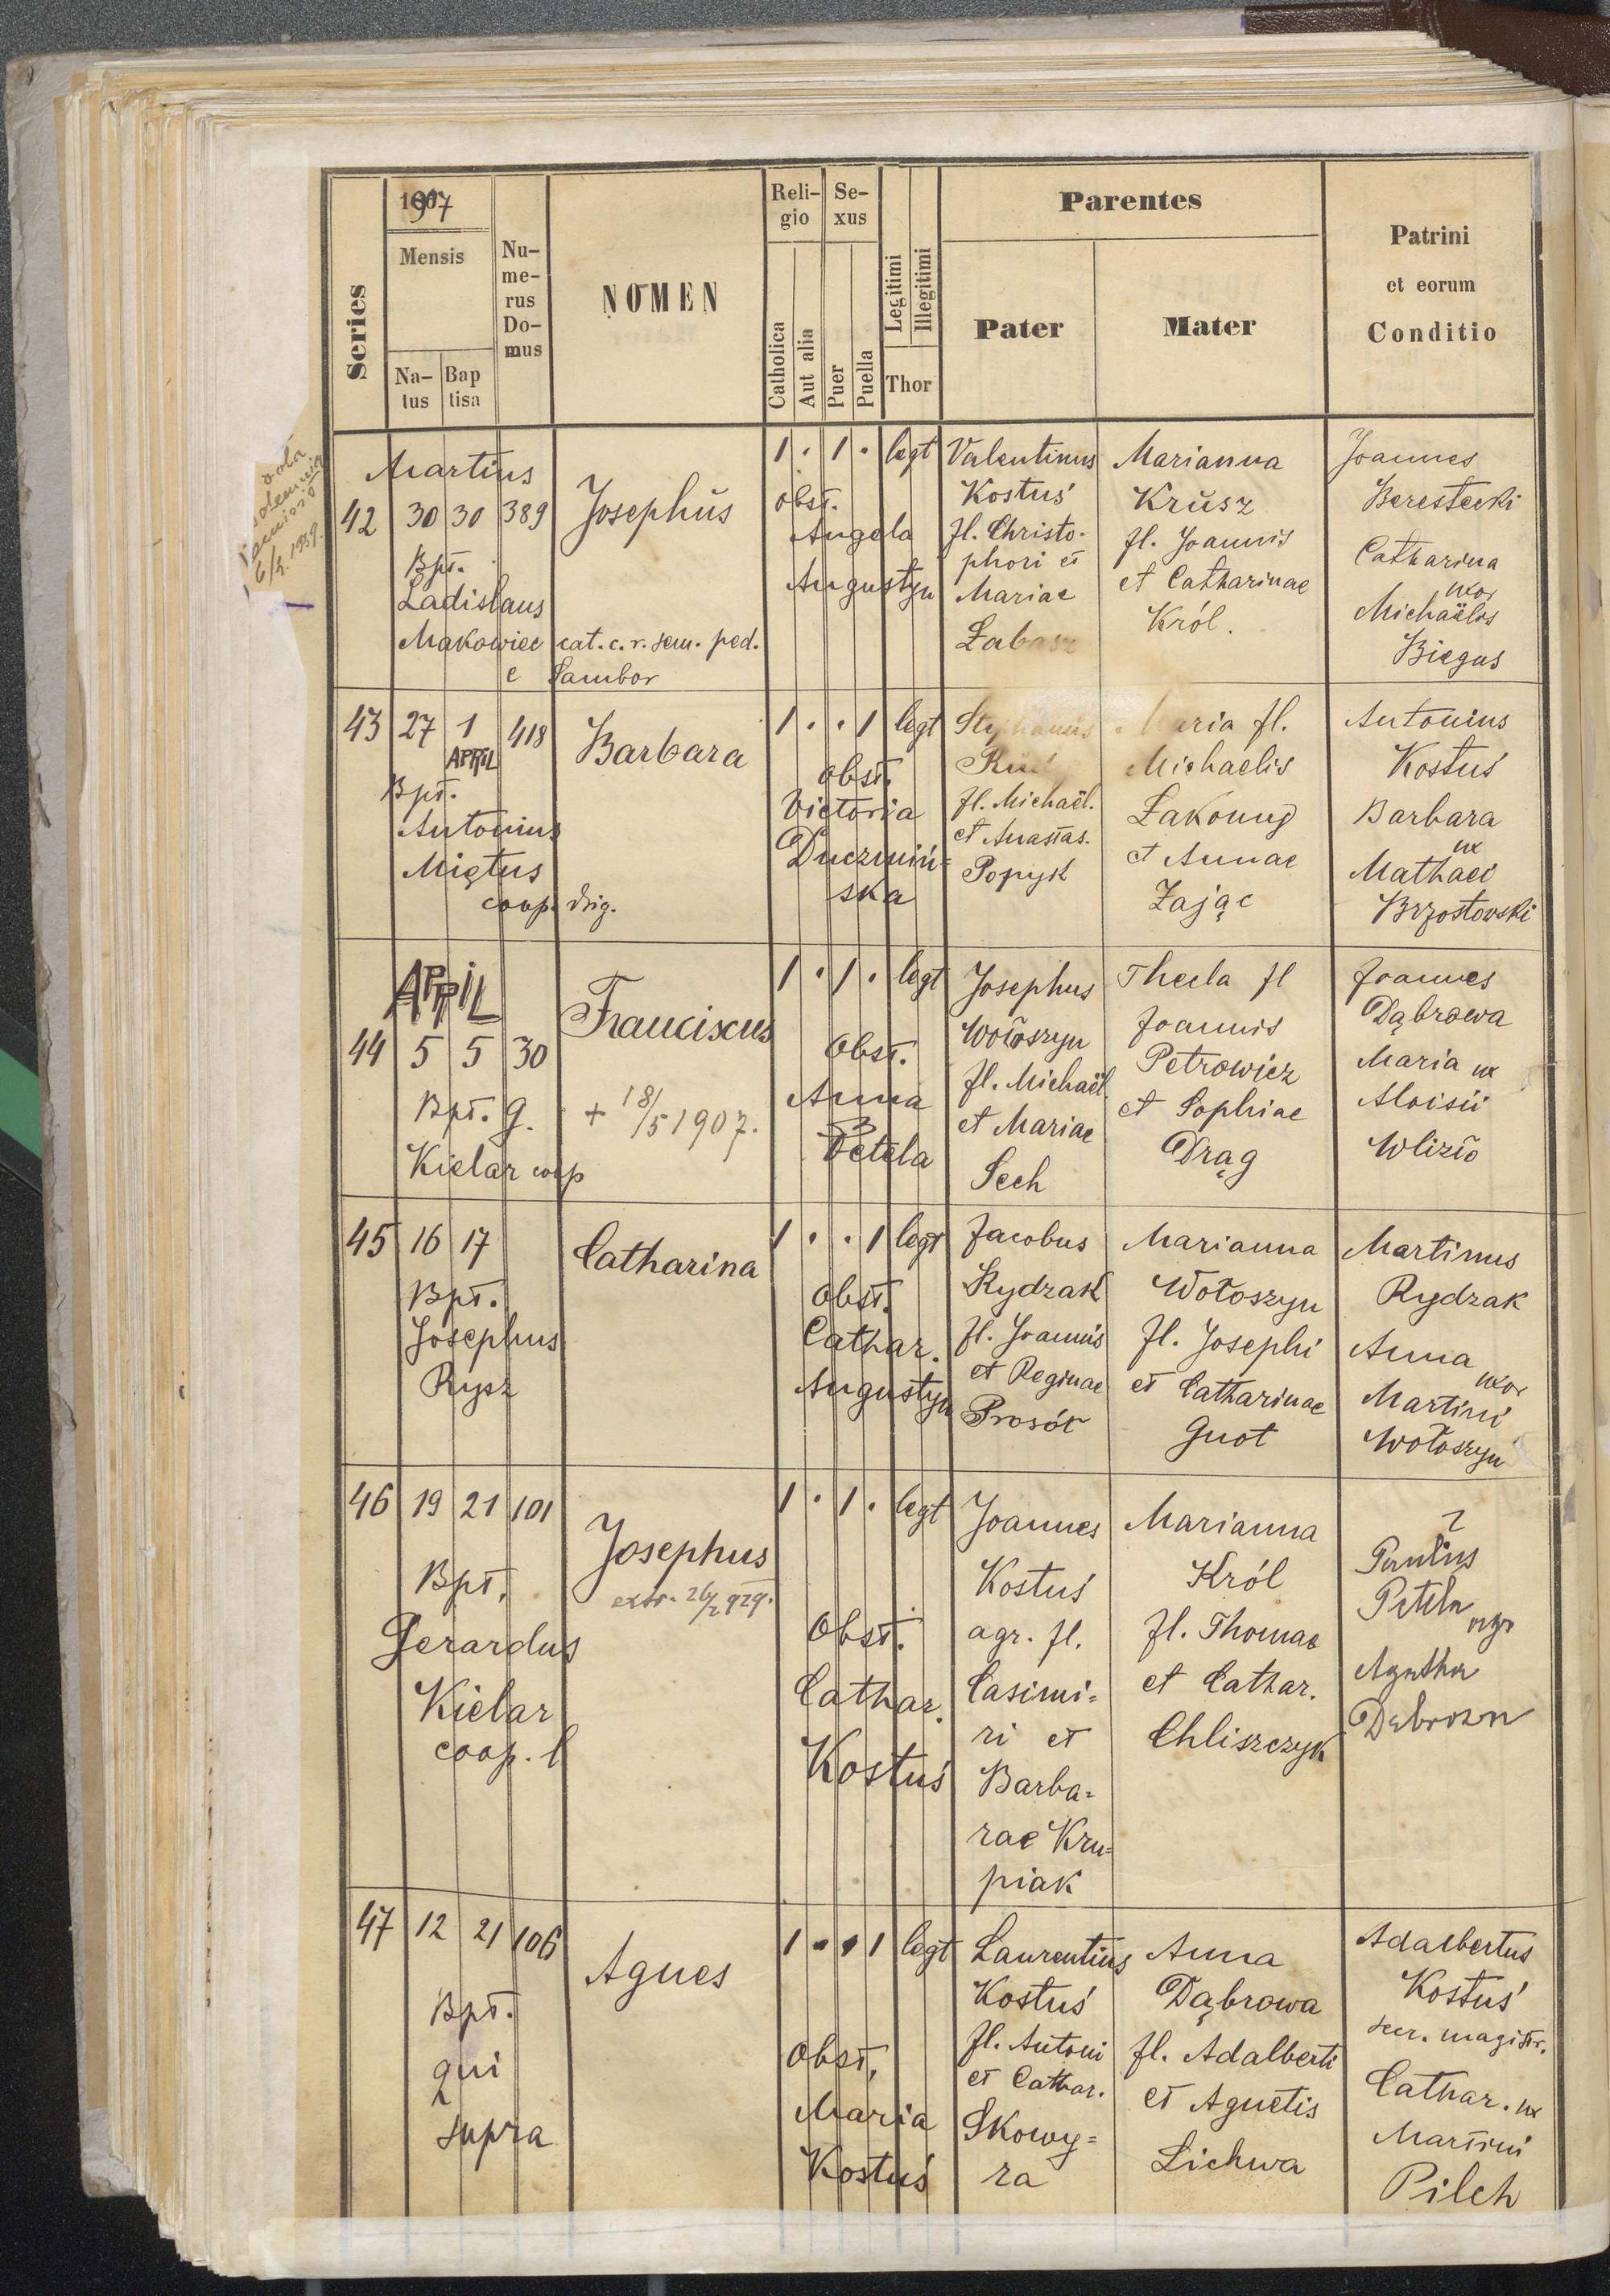 1907
Series
Mensis
Na-tus
Bap tisa
Nu-me-rus Do-mus
NOMEN
Reli-gio
Catholica
Aut alia
Se-xus
Puer
Puella
Legitimi
Illegitimi
Thor
Parentes
Pater
Mater
Patrini
et eorum
Conditio
6/5. 1939.
Martius
42 30 30 389
Bpt.
Ladislaus
Makowiec cat. c. r. sem. ped.
Sambor
Josephus
1 . 1 . legt
obst.
Angela
Augustyn
Valentinus
Kostuś
fl. Christo-
phori et
Mariae
Łabasz
Marianna
Krusz
fl. Joannis
et Catharinae
Król.
Joannes
Berestecki
Catharina
uxor
Michaëlis
Biegus
43 27 1 418
APRIL
Bpt.
Antonius
Miętus
coop.
Barbara
1 . . 1 legt
obst.
Victoria
Duczmiń=
ska
Stephanus
fl. Michaël.
et Anastas.
Popyk
Maria fl.
Michaelis
et Annae
Zając
Antonius
Kostuś
Barbara
ux
Mathaei
Brzostowski
APRIL
44 5 5 30
Bpt. G.
Kielar coop
Franciscus
+ 18/5 1907.
1 . 1 . legt
Obst.
Anna
Petela
Josephus
Wołoszyn
fl. Michaël.
et Mariae
Sech
Thecla fl
Joannis
Petrowicz
et Sophiae
Drąg
Joannes
Dąbrowa
Maria ux
Aloisii
Wlizło
45 16 17
Bpt.
Josephus
Rysz
Catharina
1 . . 1 legt
Obst.
Cathar.
Augustyn
Jacobus
Rydzak
fl. Joannis
et Reginae
Prosół
Marianna
Wołoszyn
fl. Josephi
et Catharinae
Gnot
Martinus
Rydzak
Anna
uxor
Martini
Wołoszyn
46 19 21 101
Bpt.
Gerardus
Kielar
coop. l
Josephus
extr. 26/2 929.
1 . 1 . legt
Obst.
Cathar.
Kostuś
Joannes
Kostuś
agr. fl.
Casimi=
ri et
Barba=
rae Kru=
piak
Marianna
Król
fl. Thomae
et Cathar.
Chliszczyk
Paulus
Petela
Agatha
Dąbrowa
47 12 21 106
Bpt.
qui
supra
Agnes
1 . . 1 legt
Obst.
Maria
Kostuś
Laurentius
Kostuś
fl. Antoni
et Cathar.
Skowy=
ra
Anna
Dąbrowa
fl. Adalberti
et Agnetis
Lichwa
Adalbertus
Kostuś
secr. magistr.
Cathar. ux
Martini
Pilch